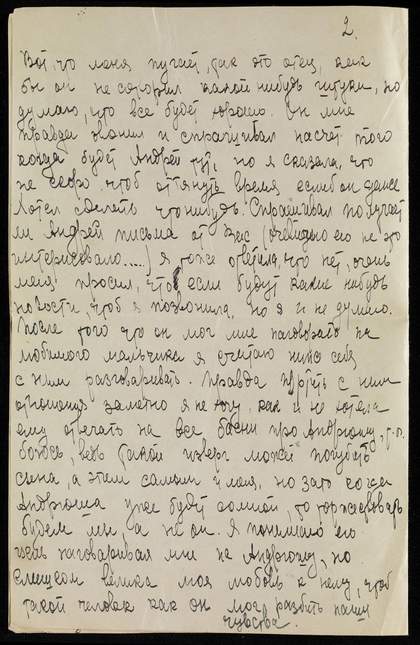 2.
Вот что меня пугает, так это отец, как
бы он не сотворил какой нибудь штуки, но
думаю, что все будет хорошо. Он мне
правда звонил и спрашивал насчет того
когда будет Андрей тут, но я сказала, что
не скоро чтоб оттянуть время если б он даже
хотел сделать что нибудь. Спрашивал получает
ли Андрей письма от Вас (очевидно его не это
интерисовало....) я тоже ответила, что нет, очень
меня просил, что если будут какие нибудь
новости, чтоб я позвонила, но я и не думаю.
После того что он мог мне наговорить на
любимого мальчика я считаю ниже себя
с ним разговаривать. Правда портить с ним
отношения заметно я не хочу, как и не хотела
ему отвечать на все басни про Андрюшу, т.к.
боюсь, ведь такой изверг может погубить
сына, а этим самым и меня, но зато когда
Андрюша уже будет со мной, то торжествовать
будем мы, а не он. Я понимаю его
цель наговаривая мне на Андрюшу, но
слишком велика моя любовь к нему, чтоб
такой человек как он мог разбить наши
чувства.